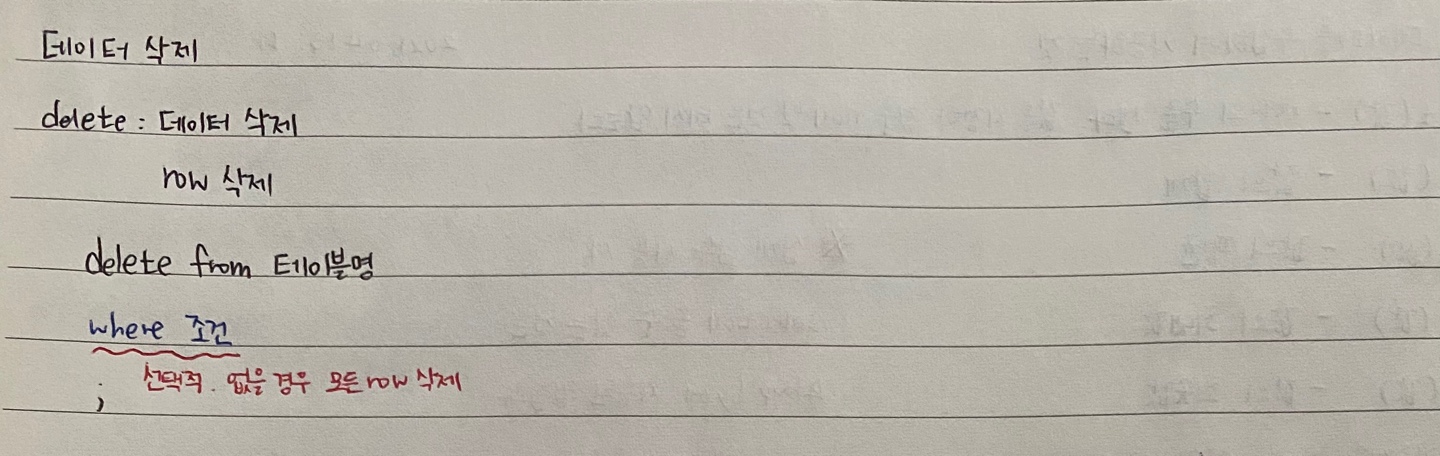 데이터 삭제
delete : 데이터 삭제
row 삭제
delete from 테이블명
where 조건
선택적. 없을 경우 모든 row 삭제
;